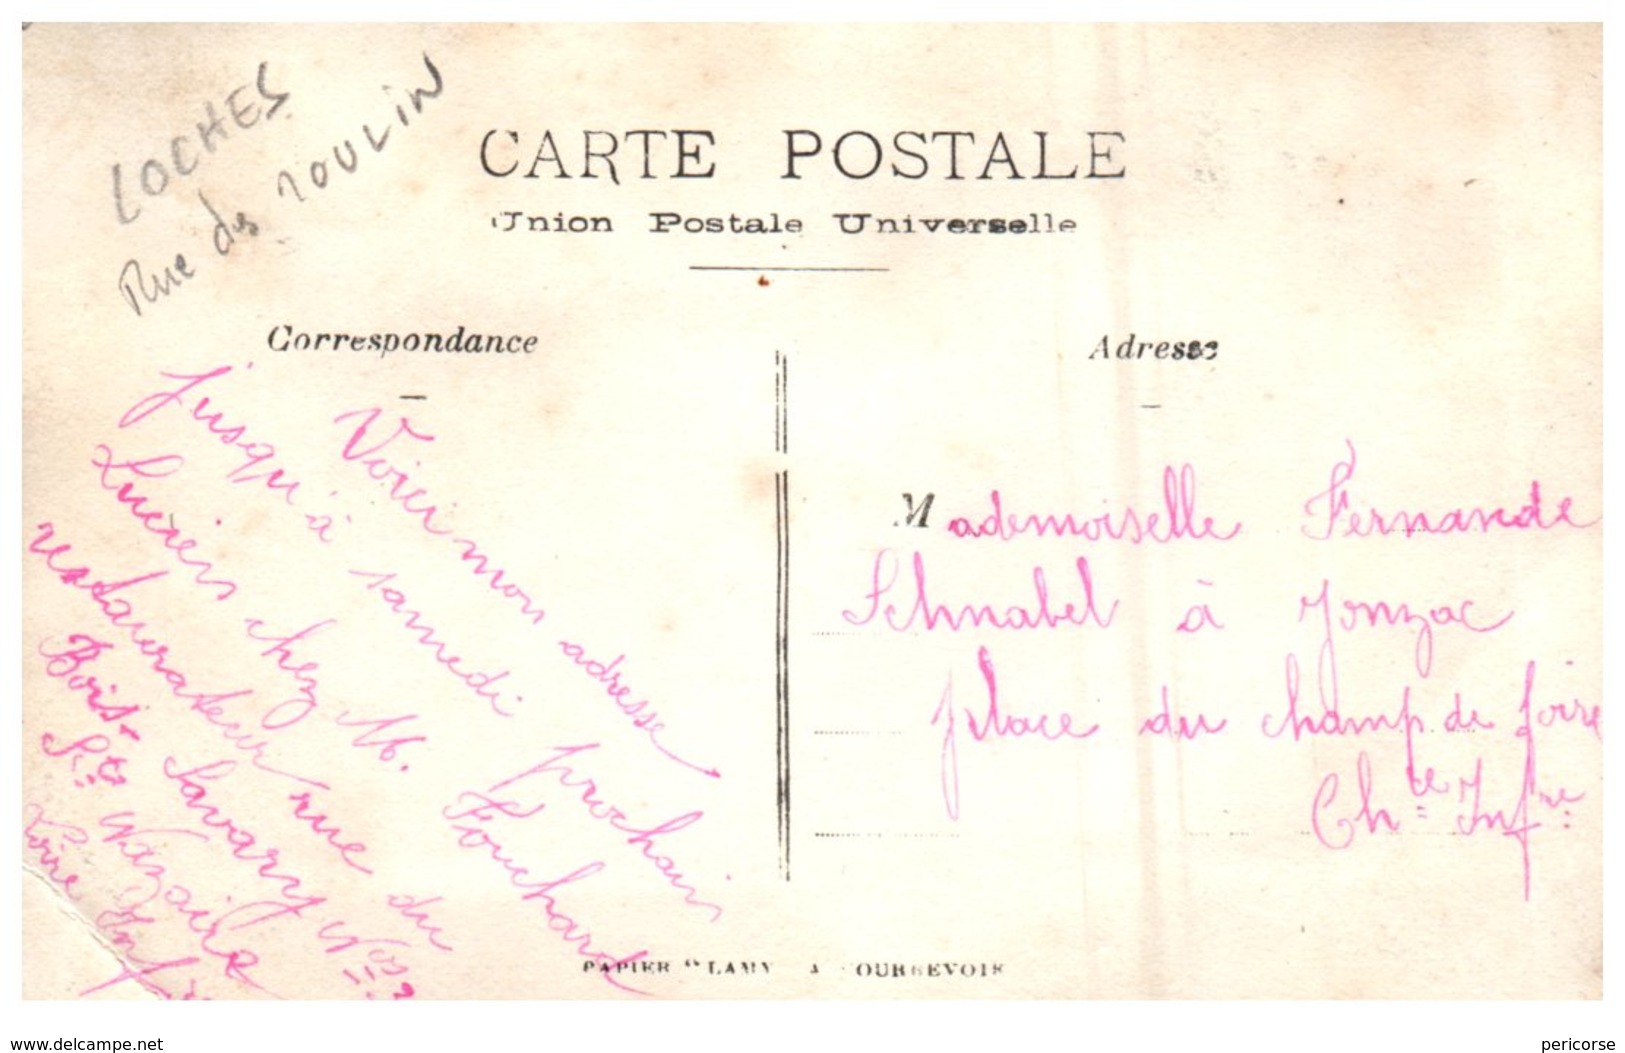 LOCHES
Rue des MOULIN
CARTE POSTALE
Union Postale Universelle
Correspondance
Adresse
Voici mon adresse
jusqu'à samedi prochain
Lucien chez M. Fouchard
restaurateur rue du
Bois Savary Nos
St Nazaire
Loire Inf
Mademoiselle Fernande
Schnabel à Jonzac
place du champ de foire
Chte Infre
PAPIER "LAMY A COURBEVOIE
www.delcampe.net
pericorse